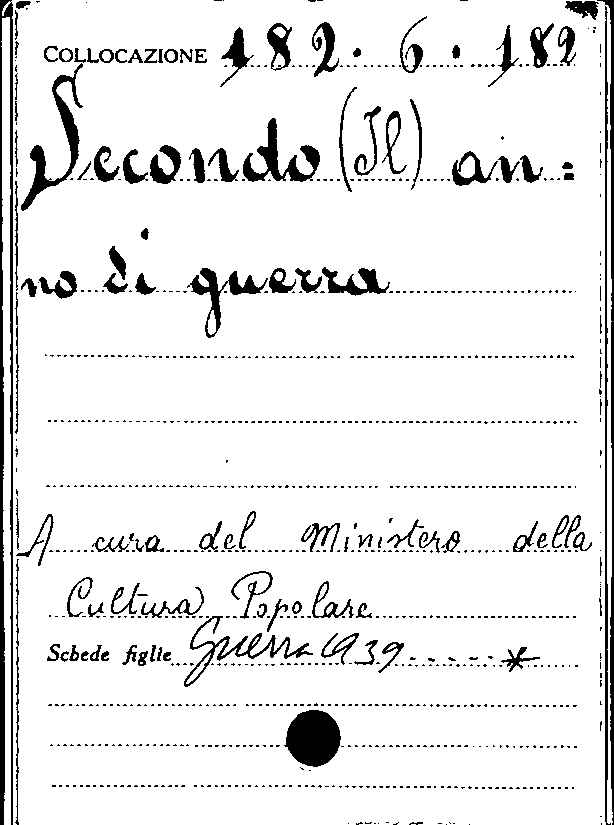 COLLOCAZIONE 182. 6. 182
Secondo (Il) an=
no di guerra
A cura del Ministero della
Cultura Popolare
Schede figlie Guerra 1939-.....*